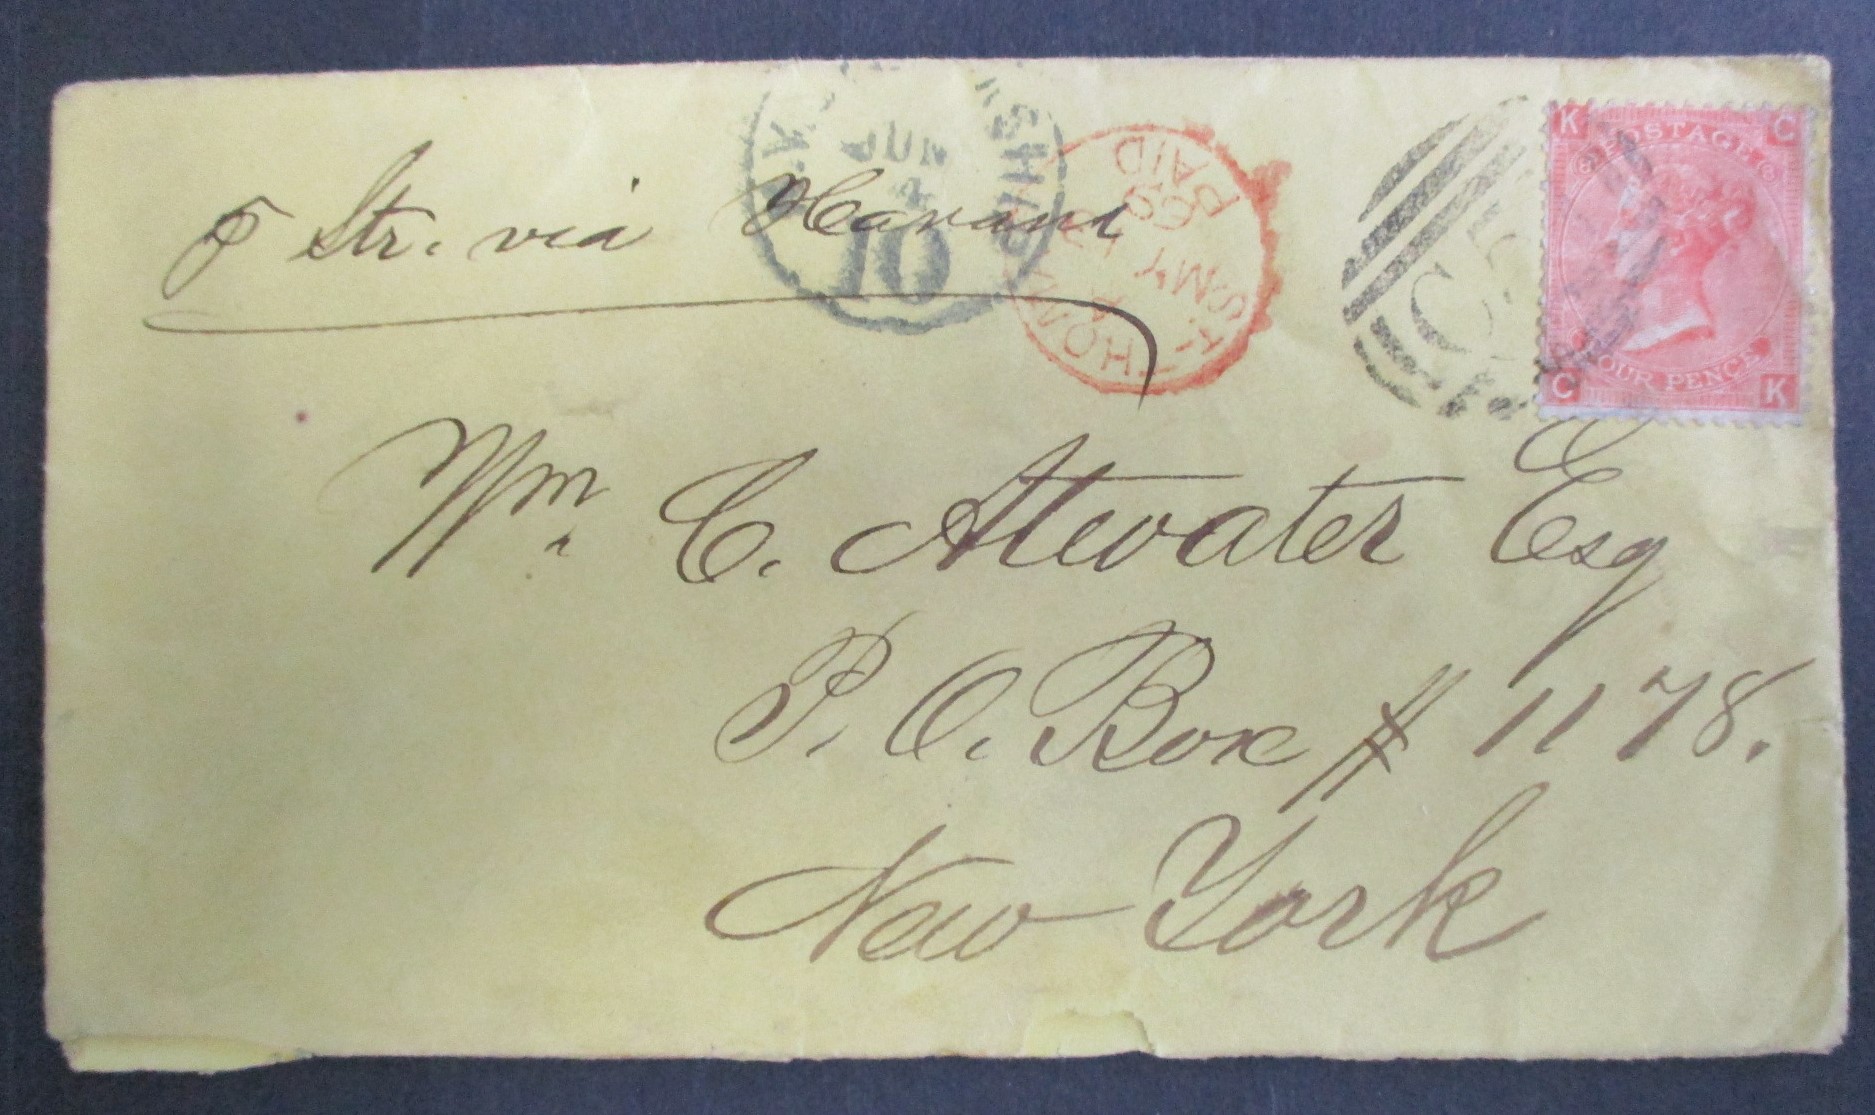 p Str. via Havana
Wm. C. Atwater Esq
P. O. Box # 1178.
New York
N.Y. STEAMSHIP
JUN
4
10
ST. THOMAS
PAID
MY
69
C51
K C
POSTAGE
FOUR PENCE
C K